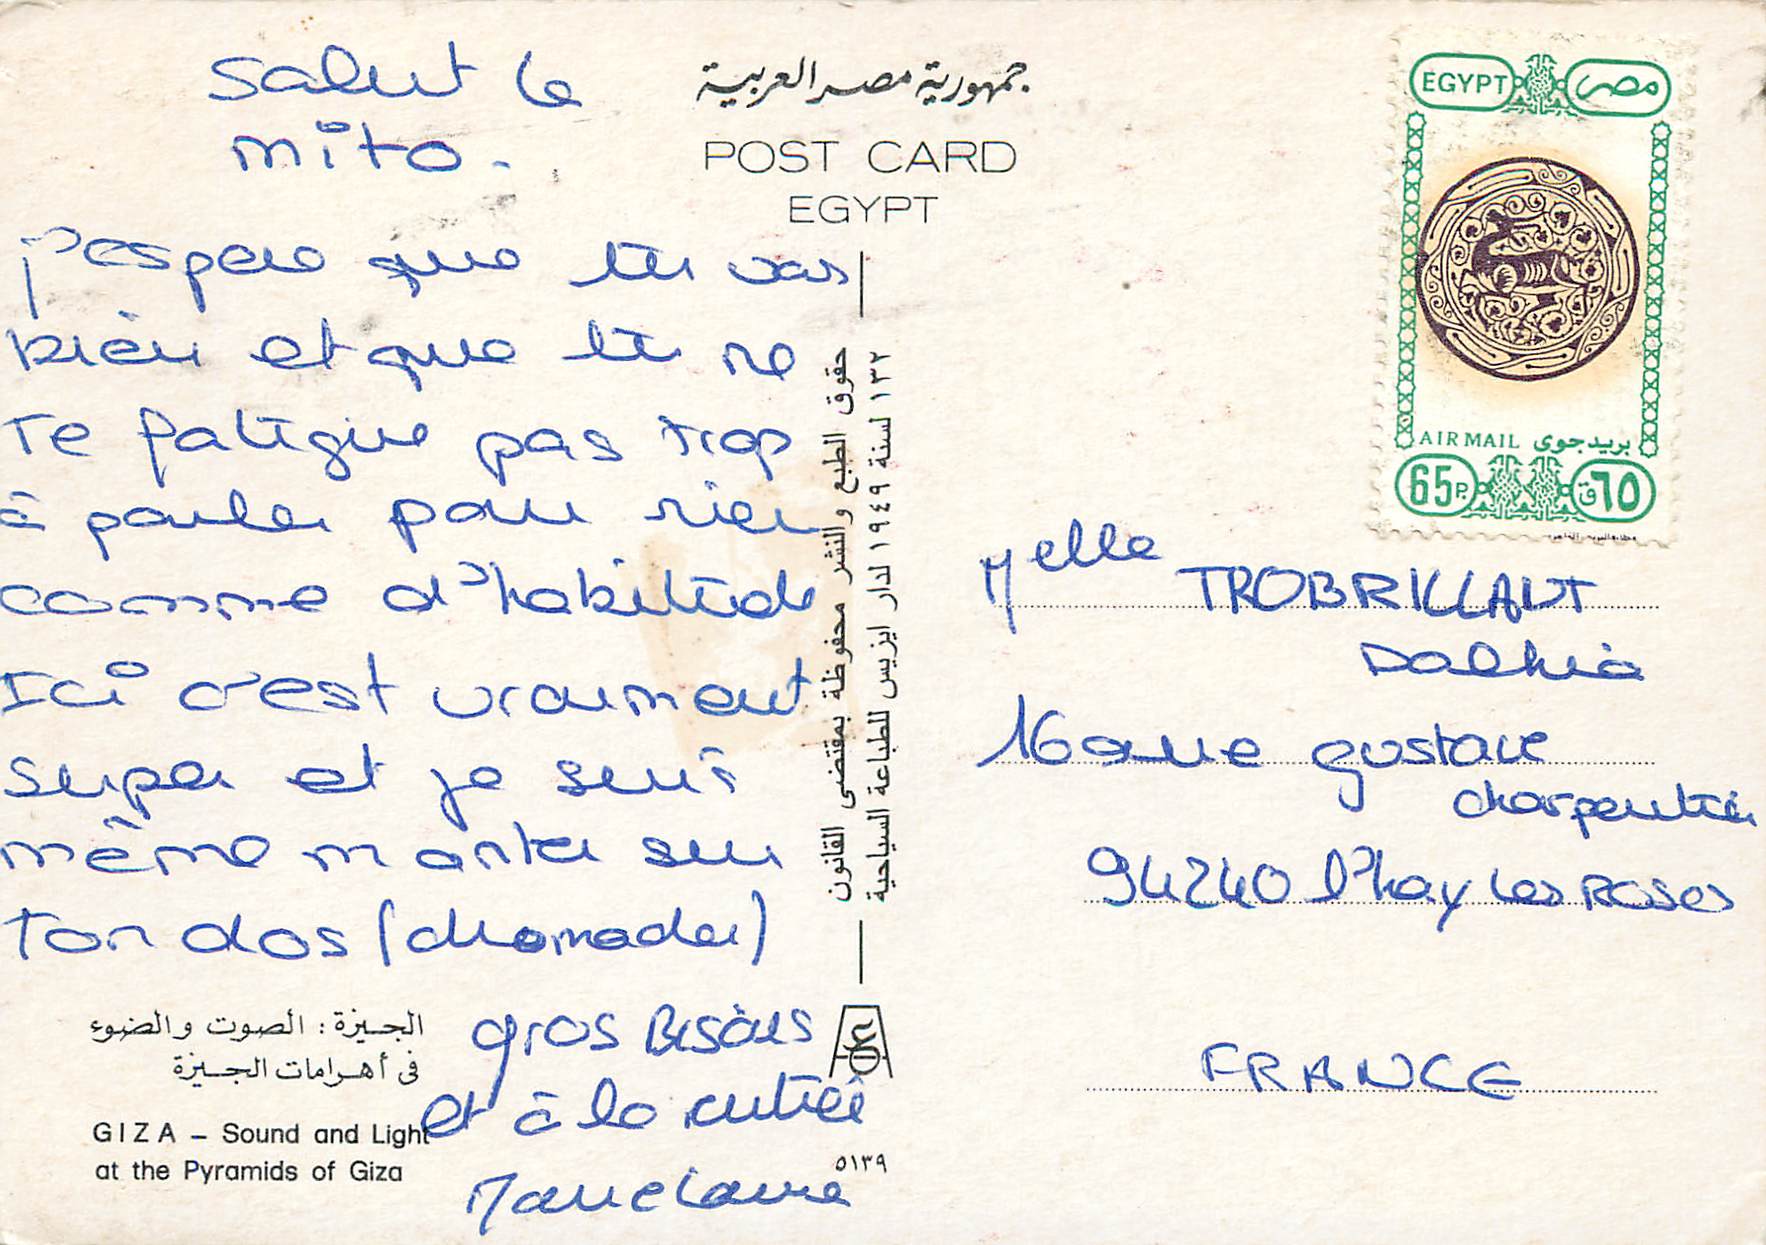 Salut le
mito.
j'espère que tu vas
bien et que tu ne
Te fatigue pas trop
à parler pour rien
comme d'habitude
Ici c'est vraiment
super et je suis
même monter sur
Ton dos (dromader)
gros Bisous
et à la rentrée
Marie Laure
جمهورية مصر العربية
POST CARD
EGYPT
حقوق الطبع والنشر محفوظة بمقتضى القانون
١٣٢ لسنة ١٩٤٩ لدار ايزيس للطباعة السياحية
الجيزة : الصوت والضوء
فى أهرامات الجيزة
GIZA – Sound and Light
at the Pyramids of Giza
٥١٣٩
EGYPT مصر
AIR MAIL بريد جوى
65P. ٦٥ق
Melle TROBRILLANT
Dalhia
16 avenue gustave
charpentier
94240 l'hay les Roses
FRANCE